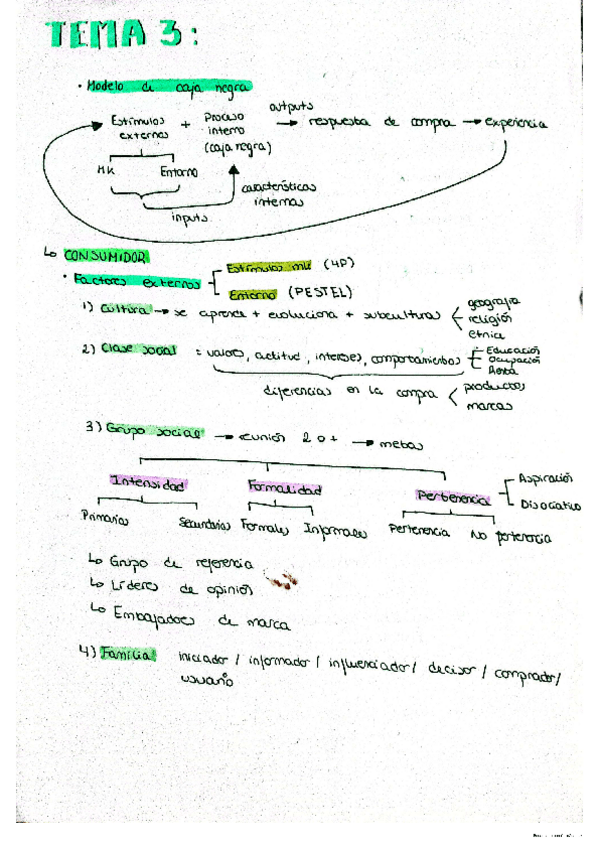 TEMA 3:
• Modelo de caja negra
Estímulos externos + Proceso interno (caja negra) outputs → respuesta de compra → experiencia
MK Entorno
características internas
inputs
↳ CONSUMIDOR
• Factores externos
Estímulos mk (4P)
Entorno (PESTEL)
1) Cultura → se aprende + evoluciona + subculturas < geografía
religión
etnia
2) Clase social = valores, actitud, intereses, comportamientos
Educación
Ocupación
Renta
diferencias en la compra < productos
marcas
3) Grupo social → reunión 2 o + → metas
Intensidad Formalidad Pertenencia
Aspiración
Disociativo
Primarios Secundarios Formales Informales Pertenencia No pertenencia
↳ Grupo de referencia
↳ Líderes de opinión
↳ Embajadores de marca
4) Familia iniciador / informador / influenciador / decisor / comprador /
usuario